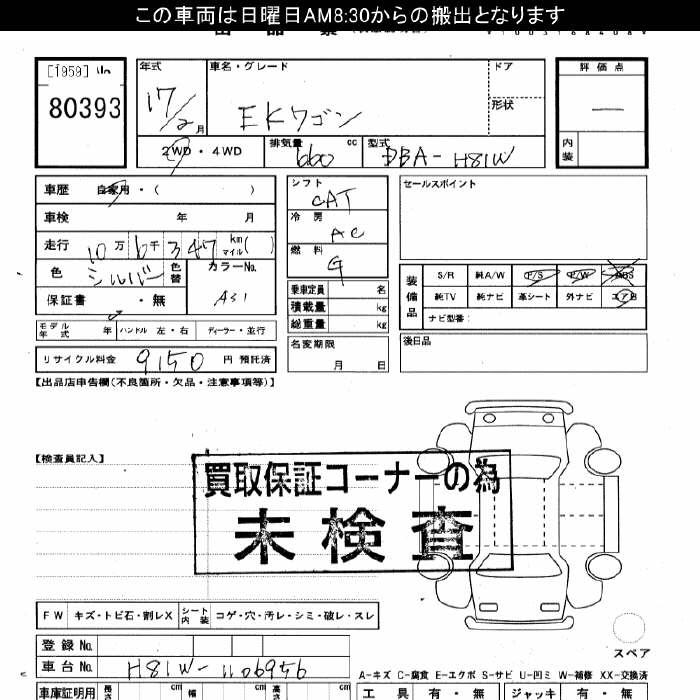 この車両は日曜日AM8:30からの搬出となります
[1959]
80393
年式
17/2月
車名・グレード
EKワゴン
ドア
形状
評価点
—
内装
2WD・4WD
排気量 660 cc
型式 DBA-H81W
車歴 自家用・( )
車検 年 月
走行 10万6千347 km マイル( )
色 シルバー 色替
カラーNo. A31
保証書 ・無
モデル年式 年 ハンドル 左・右 ディーラー・並行
リサイクル料金 9150 円 預託済
シフト CAT
冷房 AC
燃料 G
乗車定員 名
積載量 kg
総重量 kg
名変期限 月 日
セールスポイント
装備品
S/R 純A/W P/S P/W ABS
純TV 純ナビ 革シート 外ナビ エアB
ナビ型番:
後日品
【出品店申告欄(不良箇所・欠品・注意事項等)】
【検査員記入】
買取保証コーナーの為
未検査
FW キズ・トビ石・割レX シート内装 コゲ・穴・汚レ・シミ・破レ・スレ
登録No.
車台No. H81W-1106956
スペア
A-キズ C-腐食 E-エクボ S-サビ U-凹ミ W-補修 XX-交換済
車庫証明用 長さ cm 幅 cm 高さ cm
工具 有・無 ジャッキ 有・無